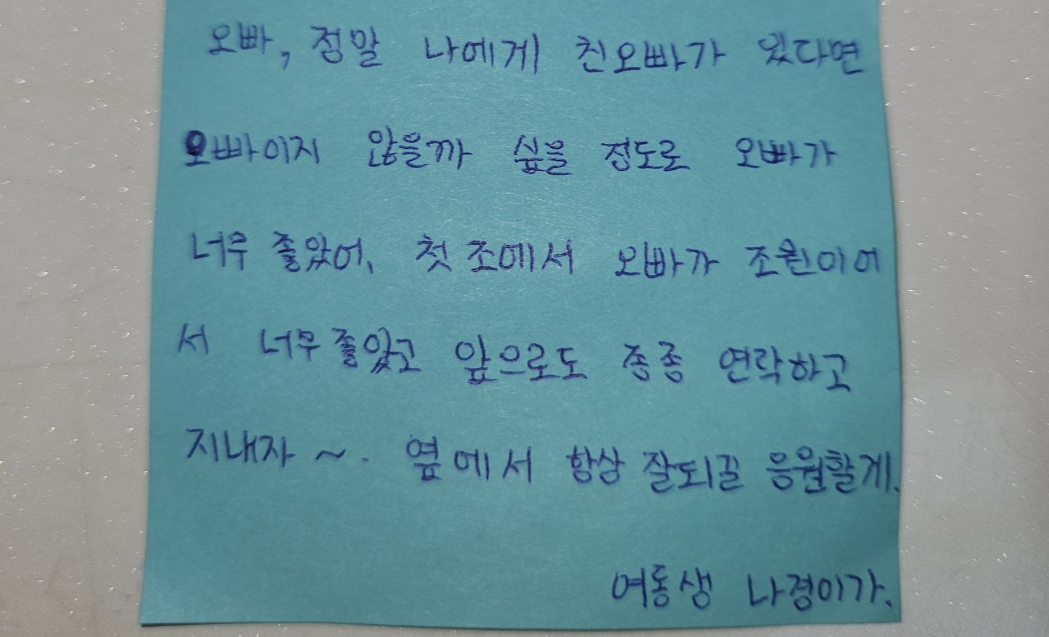 오빠, 정말 나에게 친오빠가 있다면
오빠이지 않을까 싶을 정도로 오빠가
너무 좋았어. 첫 조에서 오빠가 조원이어
서 너무 좋았고 앞으로도 종종 연락하고
지내자 ~. 옆에서 항상 잘되길 응원할게.
여동생 나경이가.